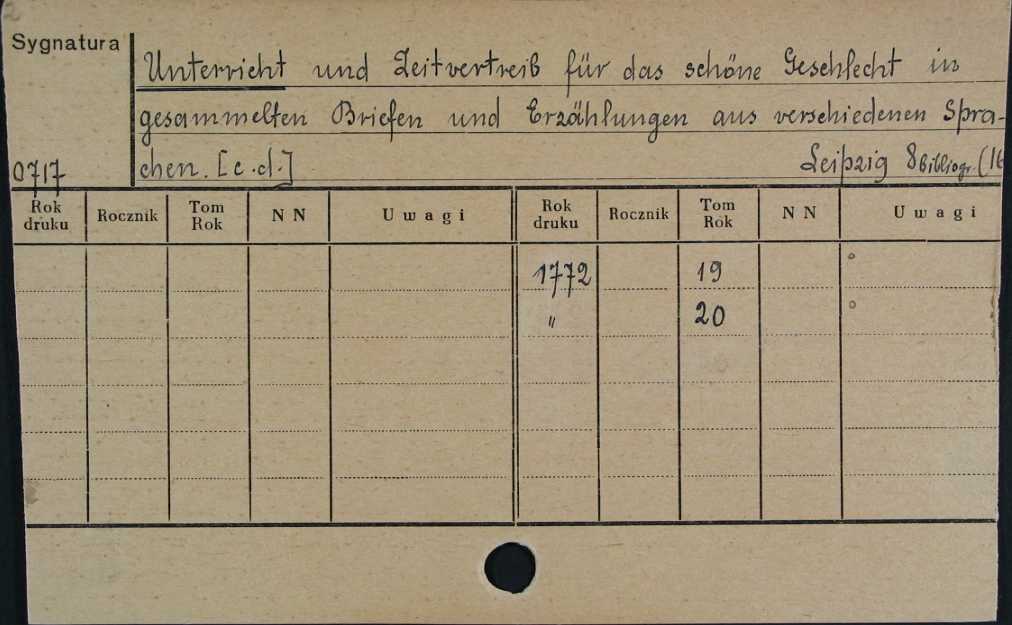 Sygnatura
Unterricht und Zeitvertreib für das schöne Geschlecht in
gesammelten Briefen und Erzählungen aus verschiedenen Spra-
chen. [c.d.] Leipzig 8 Bibliogr. (16
0717
Rok druku Rocznik Tom Rok NN Uwagi Rok druku Rocznik Tom Rok NN Uwagi
1772 19 °
" 20 °